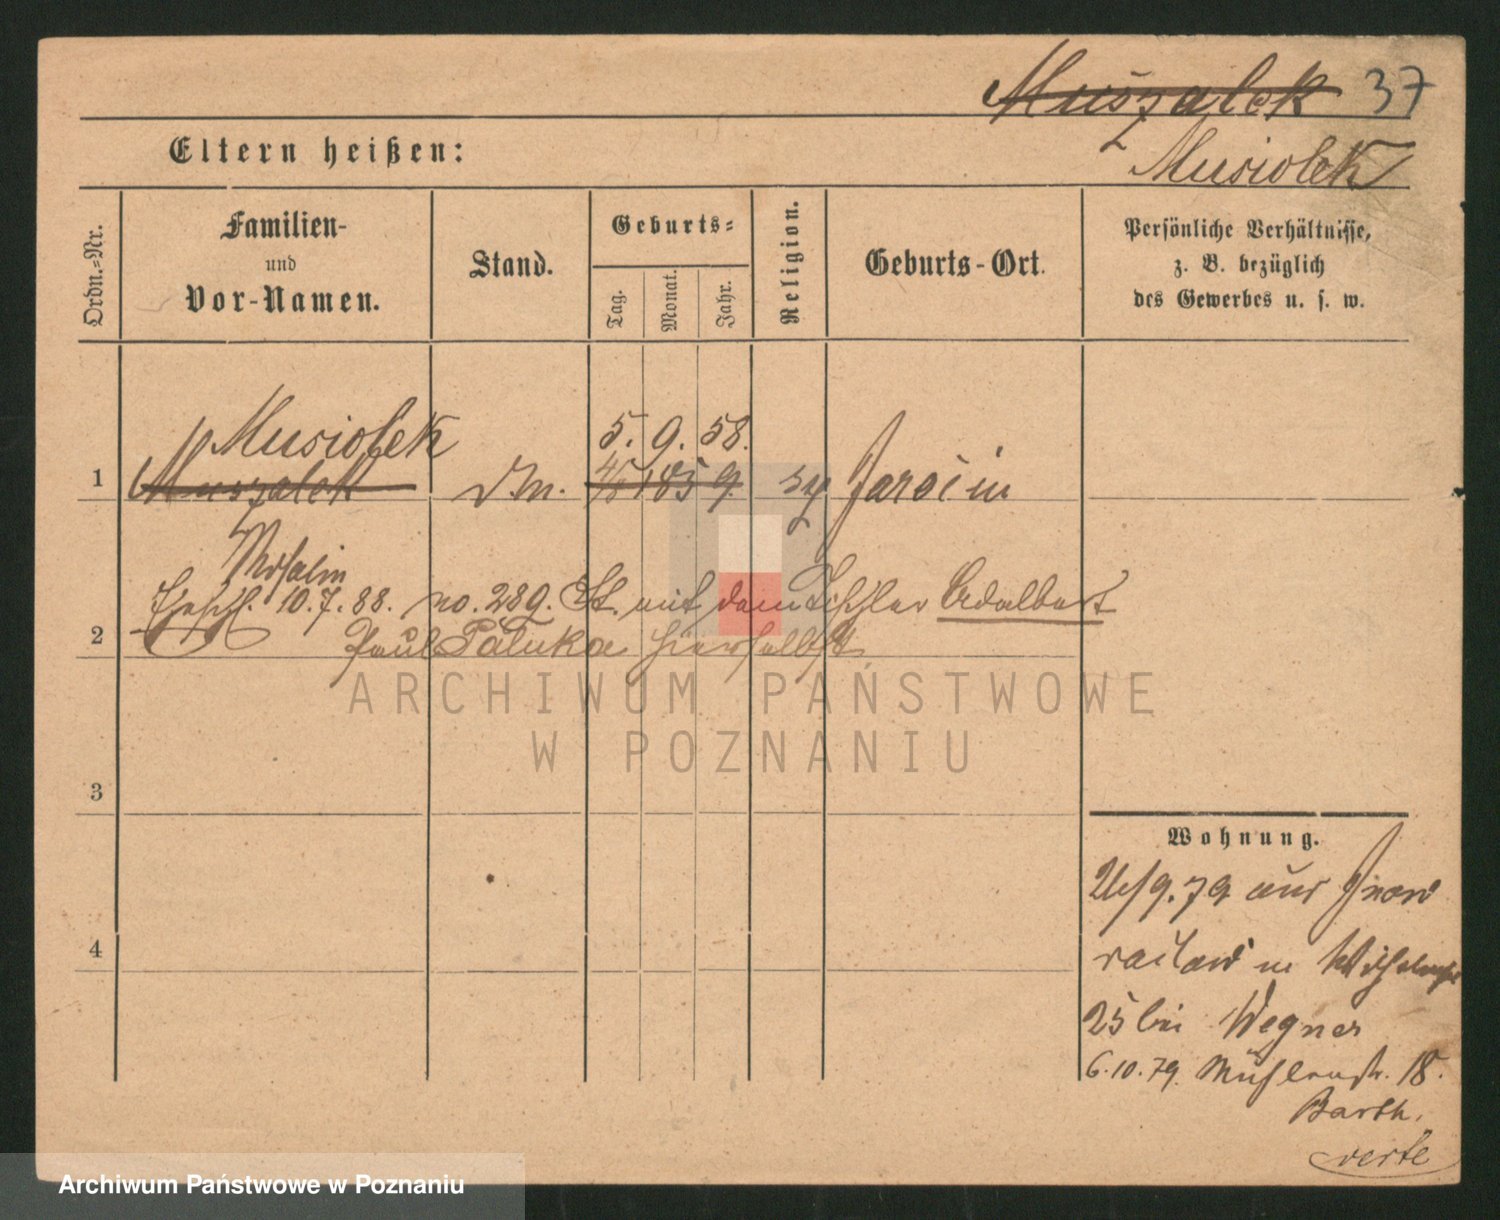 Muszalek 37
Eltern heißen:
Musiolek
Ordn.-Nr.
Familien-
und
Vor-Namen.
Stand.
Geburts-
Tag.
Monat.
Jahr.
Religion.
Geburts-Ort.
Persönliche Verhältnisse,
z. B. bezüglich
des Gewerbes u. s. w.
Musiolek 5. 9. 58.
1 Muszalek 1859. Jarocin
Ehesch. 10.7.88. no. 289. St. mit dem Tischler Adalbert
2 Paul Paluka hierselbst
ARCHIWUM PAŃSTWOWE
W POZNANIU
3
Wohnung.
26/9.79 aus Inow
raclaw in Wilhelmstr
4
25 bei Wegner
6.10.79. Mühlenstr. 18.
Barth.
verte
Archiwum Państwowe w Poznaniu